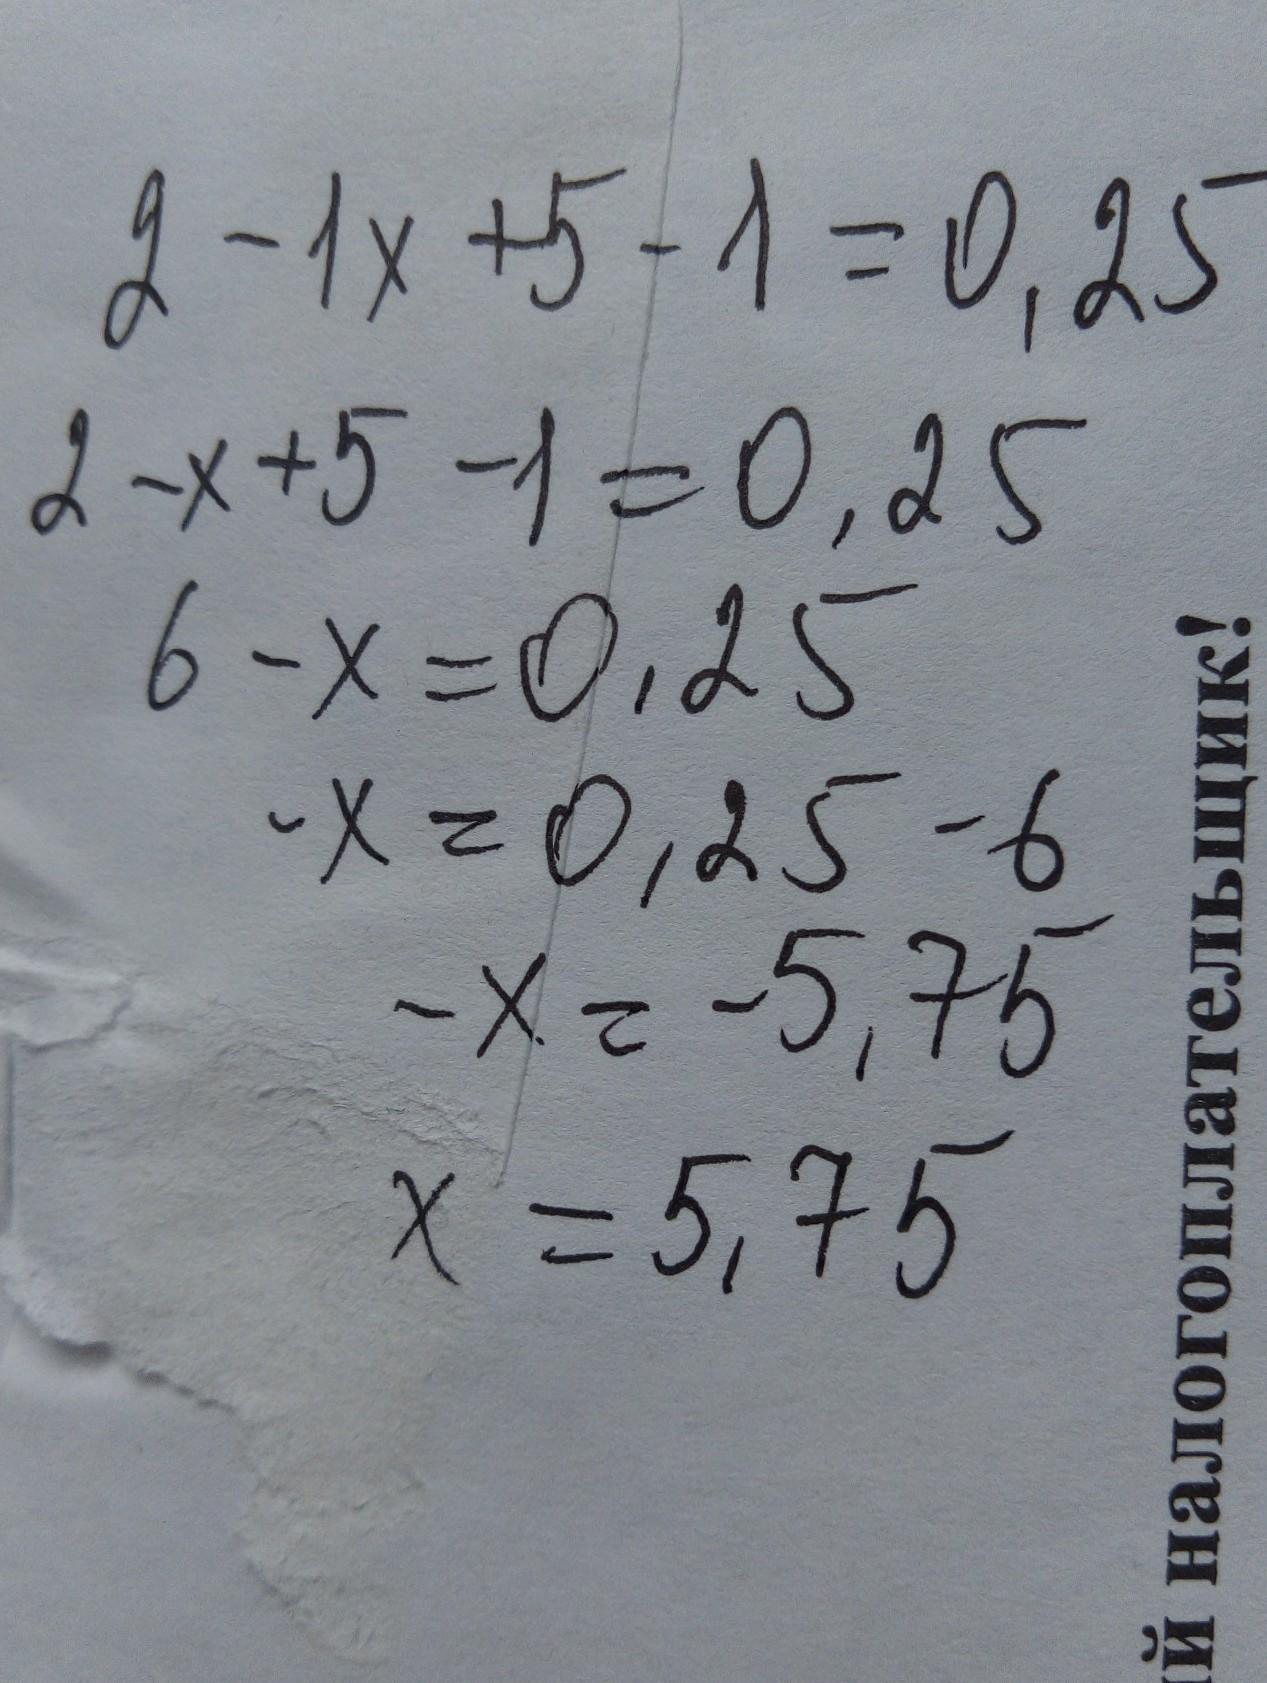 2 - 1x + 5 - 1 = 0,25
2 - x + 5 - 1 = 0,25
6 - x = 0,25
- x = 0,25 - 6
- x = - 5,75
x = 5,75
й налогоплательщик!